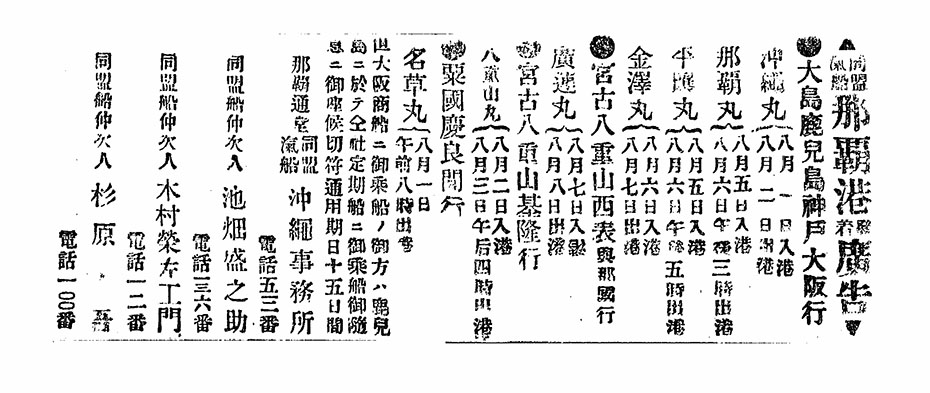 ▲同盟滊船那覇港發着廣告▼
●大島鹿兒島神戸大阪行
沖繩丸 八月一日入港 八月二日出港
那覇丸 八月五日入港 八月六日午後三時出港
平壤丸 八月五日入港 八月六日午後五時出港
金澤丸 八月六日入港 八月七日出港
●宮古八重山西表與那國行
廣運丸 八月七日入港 八月八日出港
●宮古八重山基隆行
八重山丸 八月二日入港 八月三日午后四時出港
●粟國慶良間行
名草丸 八月一日午前八時出港
但大阪商船ニ御乘船ノ御方ハ鹿兒
島ニ於テ仝社定期船ニ御乘船御隨
意ニ御座候切符通用期日十五日間
那覇通堂 同盟滊船 沖繩事務所
電話五三番
同盟船仲次人 池畑盛之助
電話一三六番
同盟船仲次人 木村榮左工門
電話一二番
同盟船仲次人 杉原
電話一〇〇番